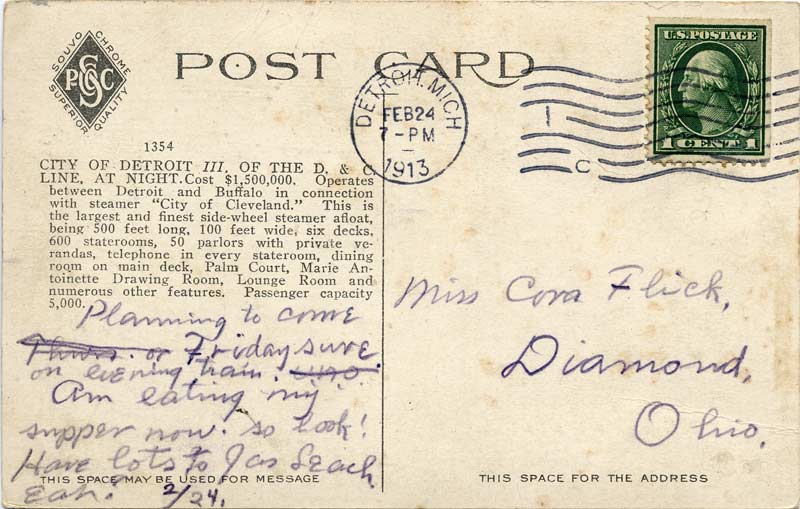 SOUVO CHROME
SUPERIOR QUALITY
PCSCC
POST CARD
U.S. POSTAGE
1 CENT 1
DETROIT, MICH
FEB 24
7 - PM
1913
1
C
1354
CITY OF DETROIT III, OF THE D. & C.
LINE, AT NIGHT. Cost $1,500,000. Operates
between Detroit and Buffalo in connection
with steamer "City of Cleveland." This is
the largest and finest side-wheel steamer afloat,
being 500 feet long, 100 feet wide, six decks,
600 staterooms, 50 parlors with private ve-
randas, telephone in every stateroom, dining
room on main deck, Palm Court, Marie An-
toinette Drawing Room, Lounge Room and
numerous other features. Passenger capacity
5,000.
Planning to come
Thurs. or Friday sure.
on evening train.
Am eating my
supper now. so look!
Have lots to
eah! 2/24.
THIS SPACE MAY BE USED FOR MESSAGE
Miss Cora Flick,
Diamond,
Ohio.
THIS SPACE FOR THE ADDRESS